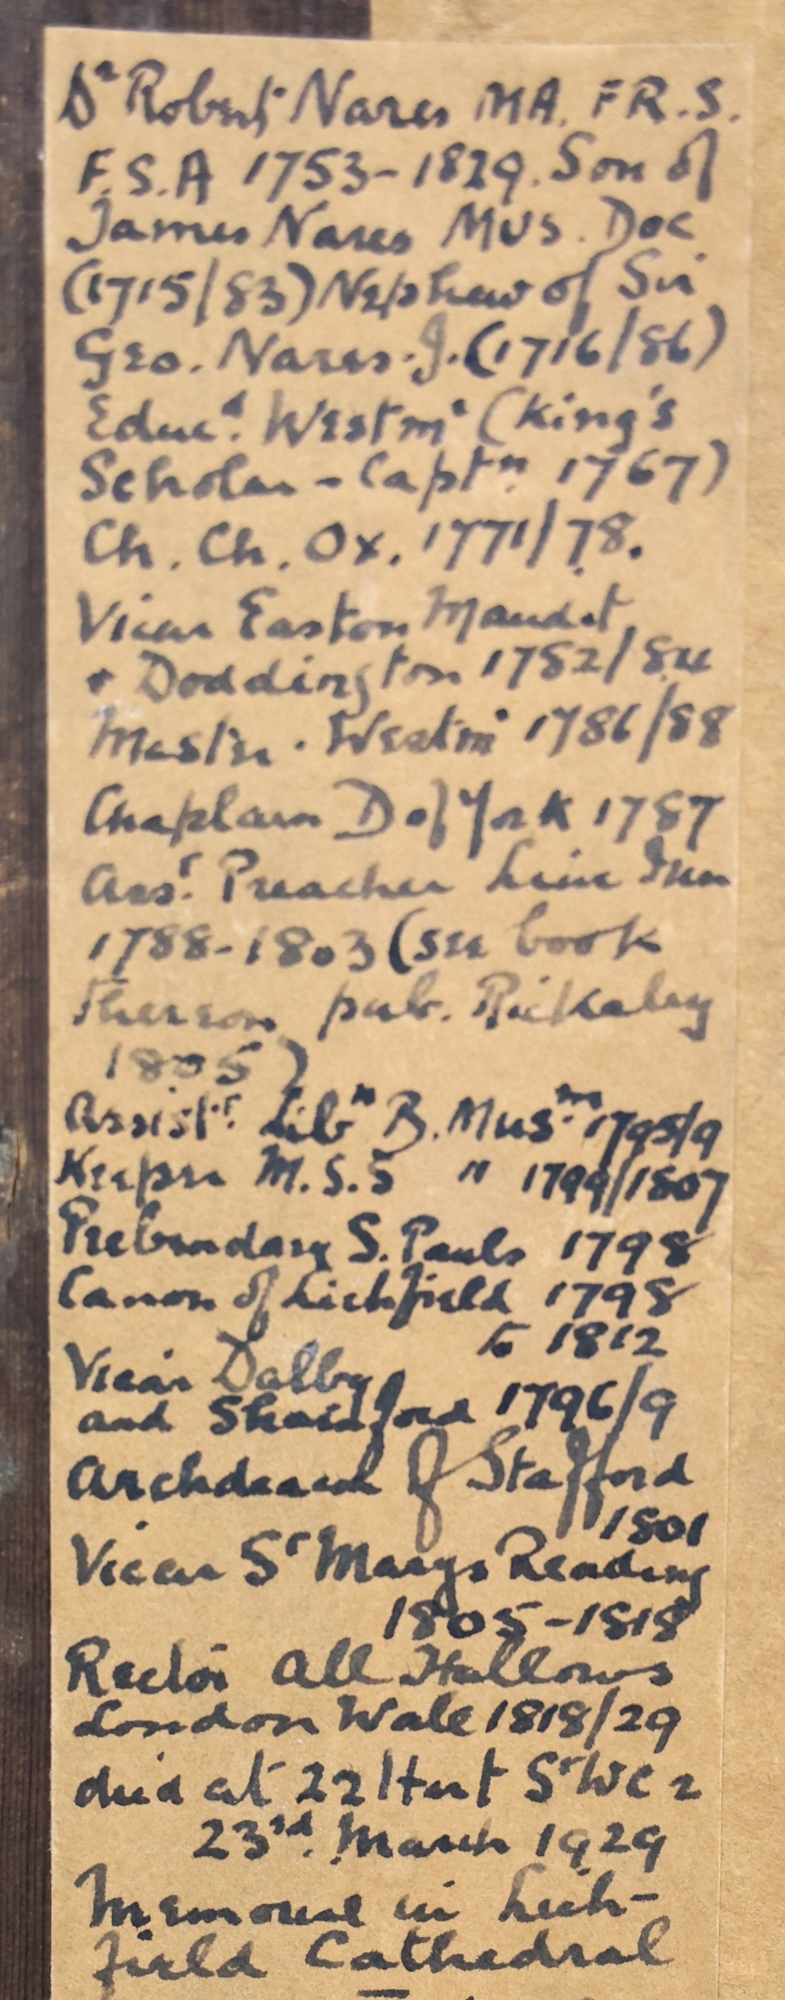 Dr Robert Nares MA. FR.S.
F.S.A 1753-1829. Son of
James Nares MUS. Doc
(1715/83) Nephew of Sir
Geo. Nares. J. (1716/86)
Educd. Westmr (King's
Scholar - Captn. 1767)
Ch. Ch. Ox. 1771/78.
Vicar Easton Maudit
+ Doddington 1782/84
Master. Westmr 1786/88
Chaplain D of York 1787
Asst. Preacher Linc Inn
1788-1803 (see book
thereon pub. Rickaby
1805)
Assistt. Libn B. Musm. 1795/9
Keeper M.S.S " 1799/1807
Prebendary S. Pauls 1798
Canon of Lichfield 1798
to 1812
Vicar Dalby
and Sharnford 1796/9
Archdeacon of Stafford
1801
Vicar St Marys Reading
1805-1818
Rector All Hallows
London Wall 1818/29
died at 22 Hart St WC2
23rd. March 1929
Memorial in Lich-
field Cathedral